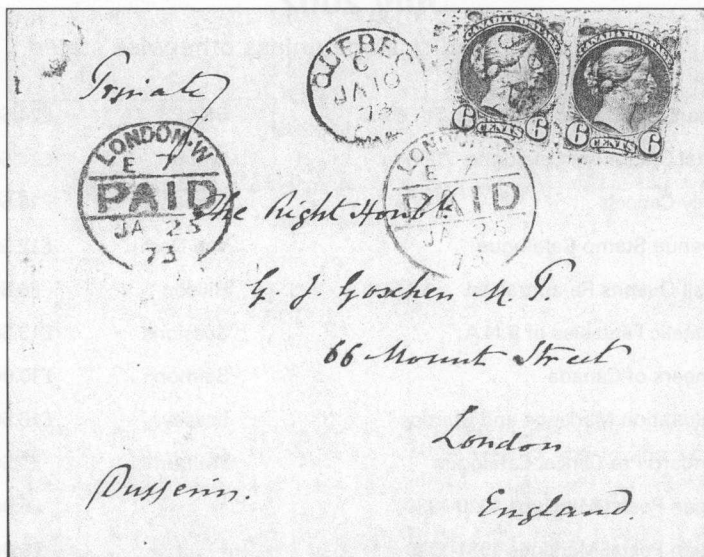 QUEBEC
C
JA 10
73
CANADA POSTAGE
CANADA POSTAGE
6 CENTS 6
6 CENTS 6
Private
LONDON·W
E 7
PAID
JA 23
73
LONDON
E 7
PAID
JA 23
73
The Right Honble
G. J. Goschen M. P.
66 Mount Street
London
England.
Dufferin.